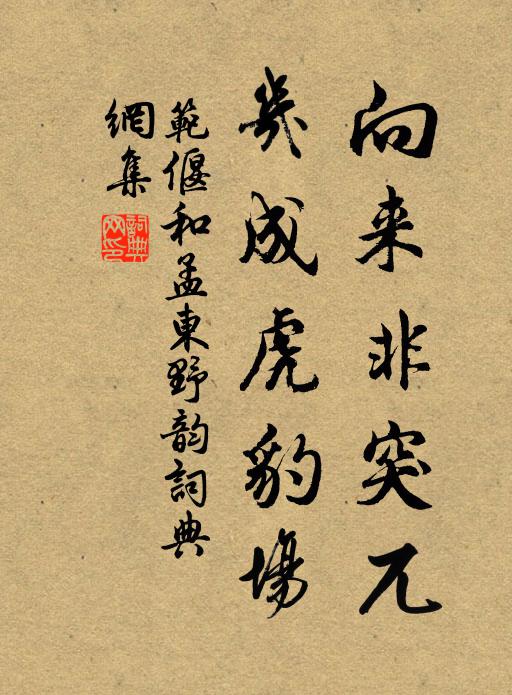 向来非突兀
幾成虎豹場
範偃和孟東野韵詞典
網集
詞典網印